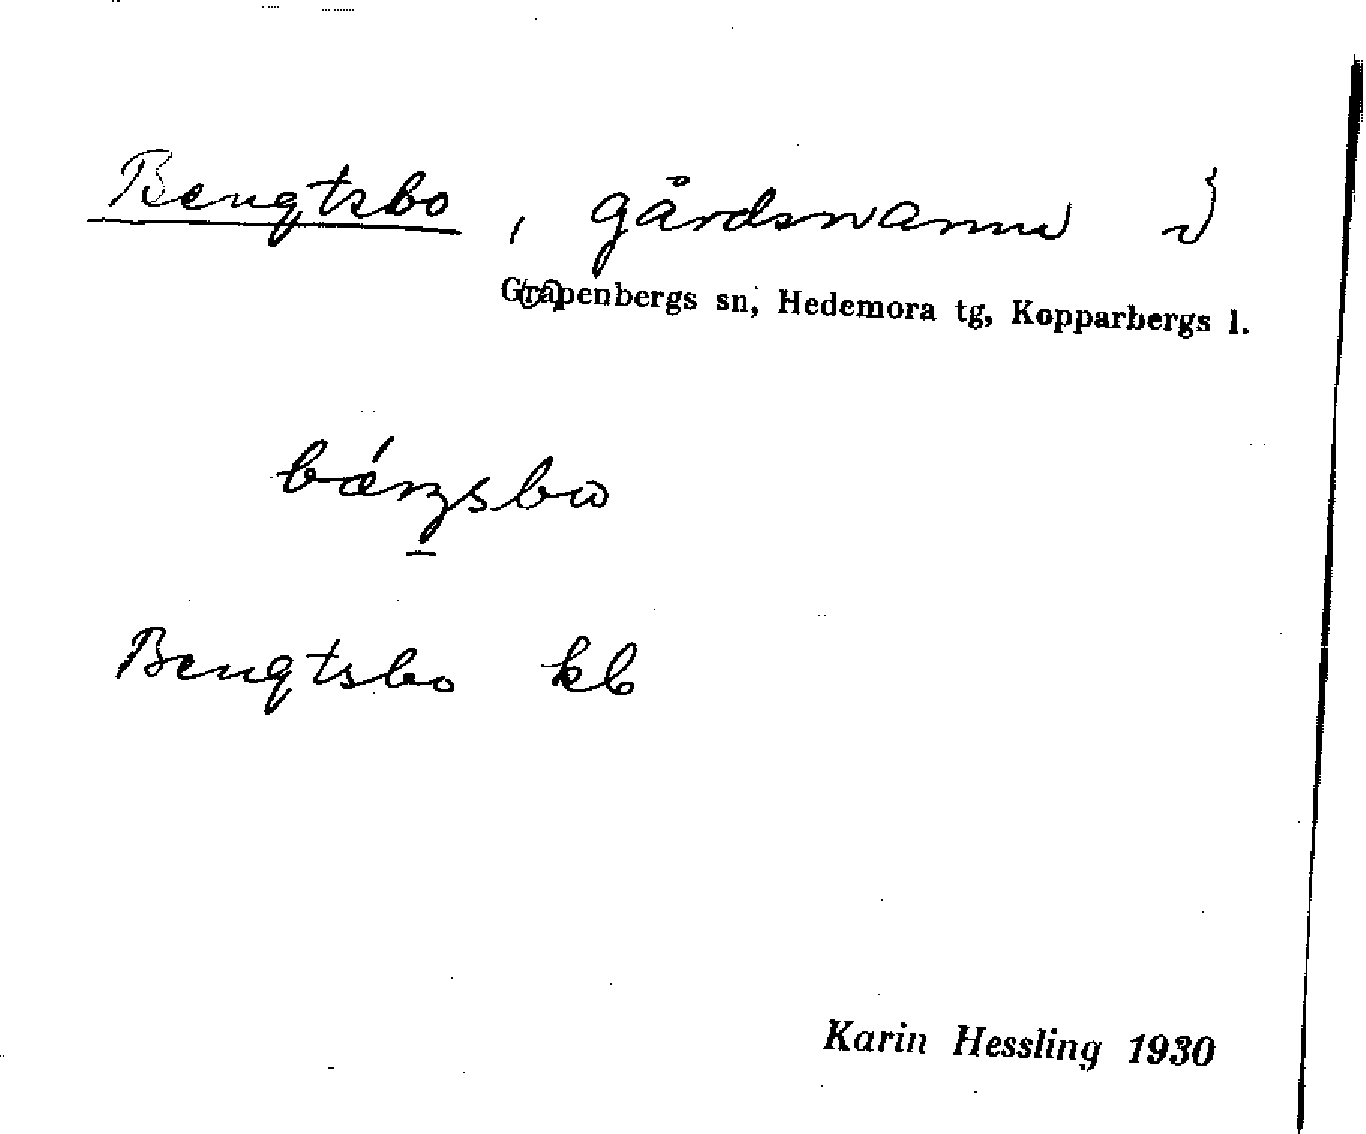 Bengtsbo, gårdsnamn i
Grapenbergs sn, Hedemora tg, Kopparbergs l.
Bengtsbo kb
Karin Hessling 1930